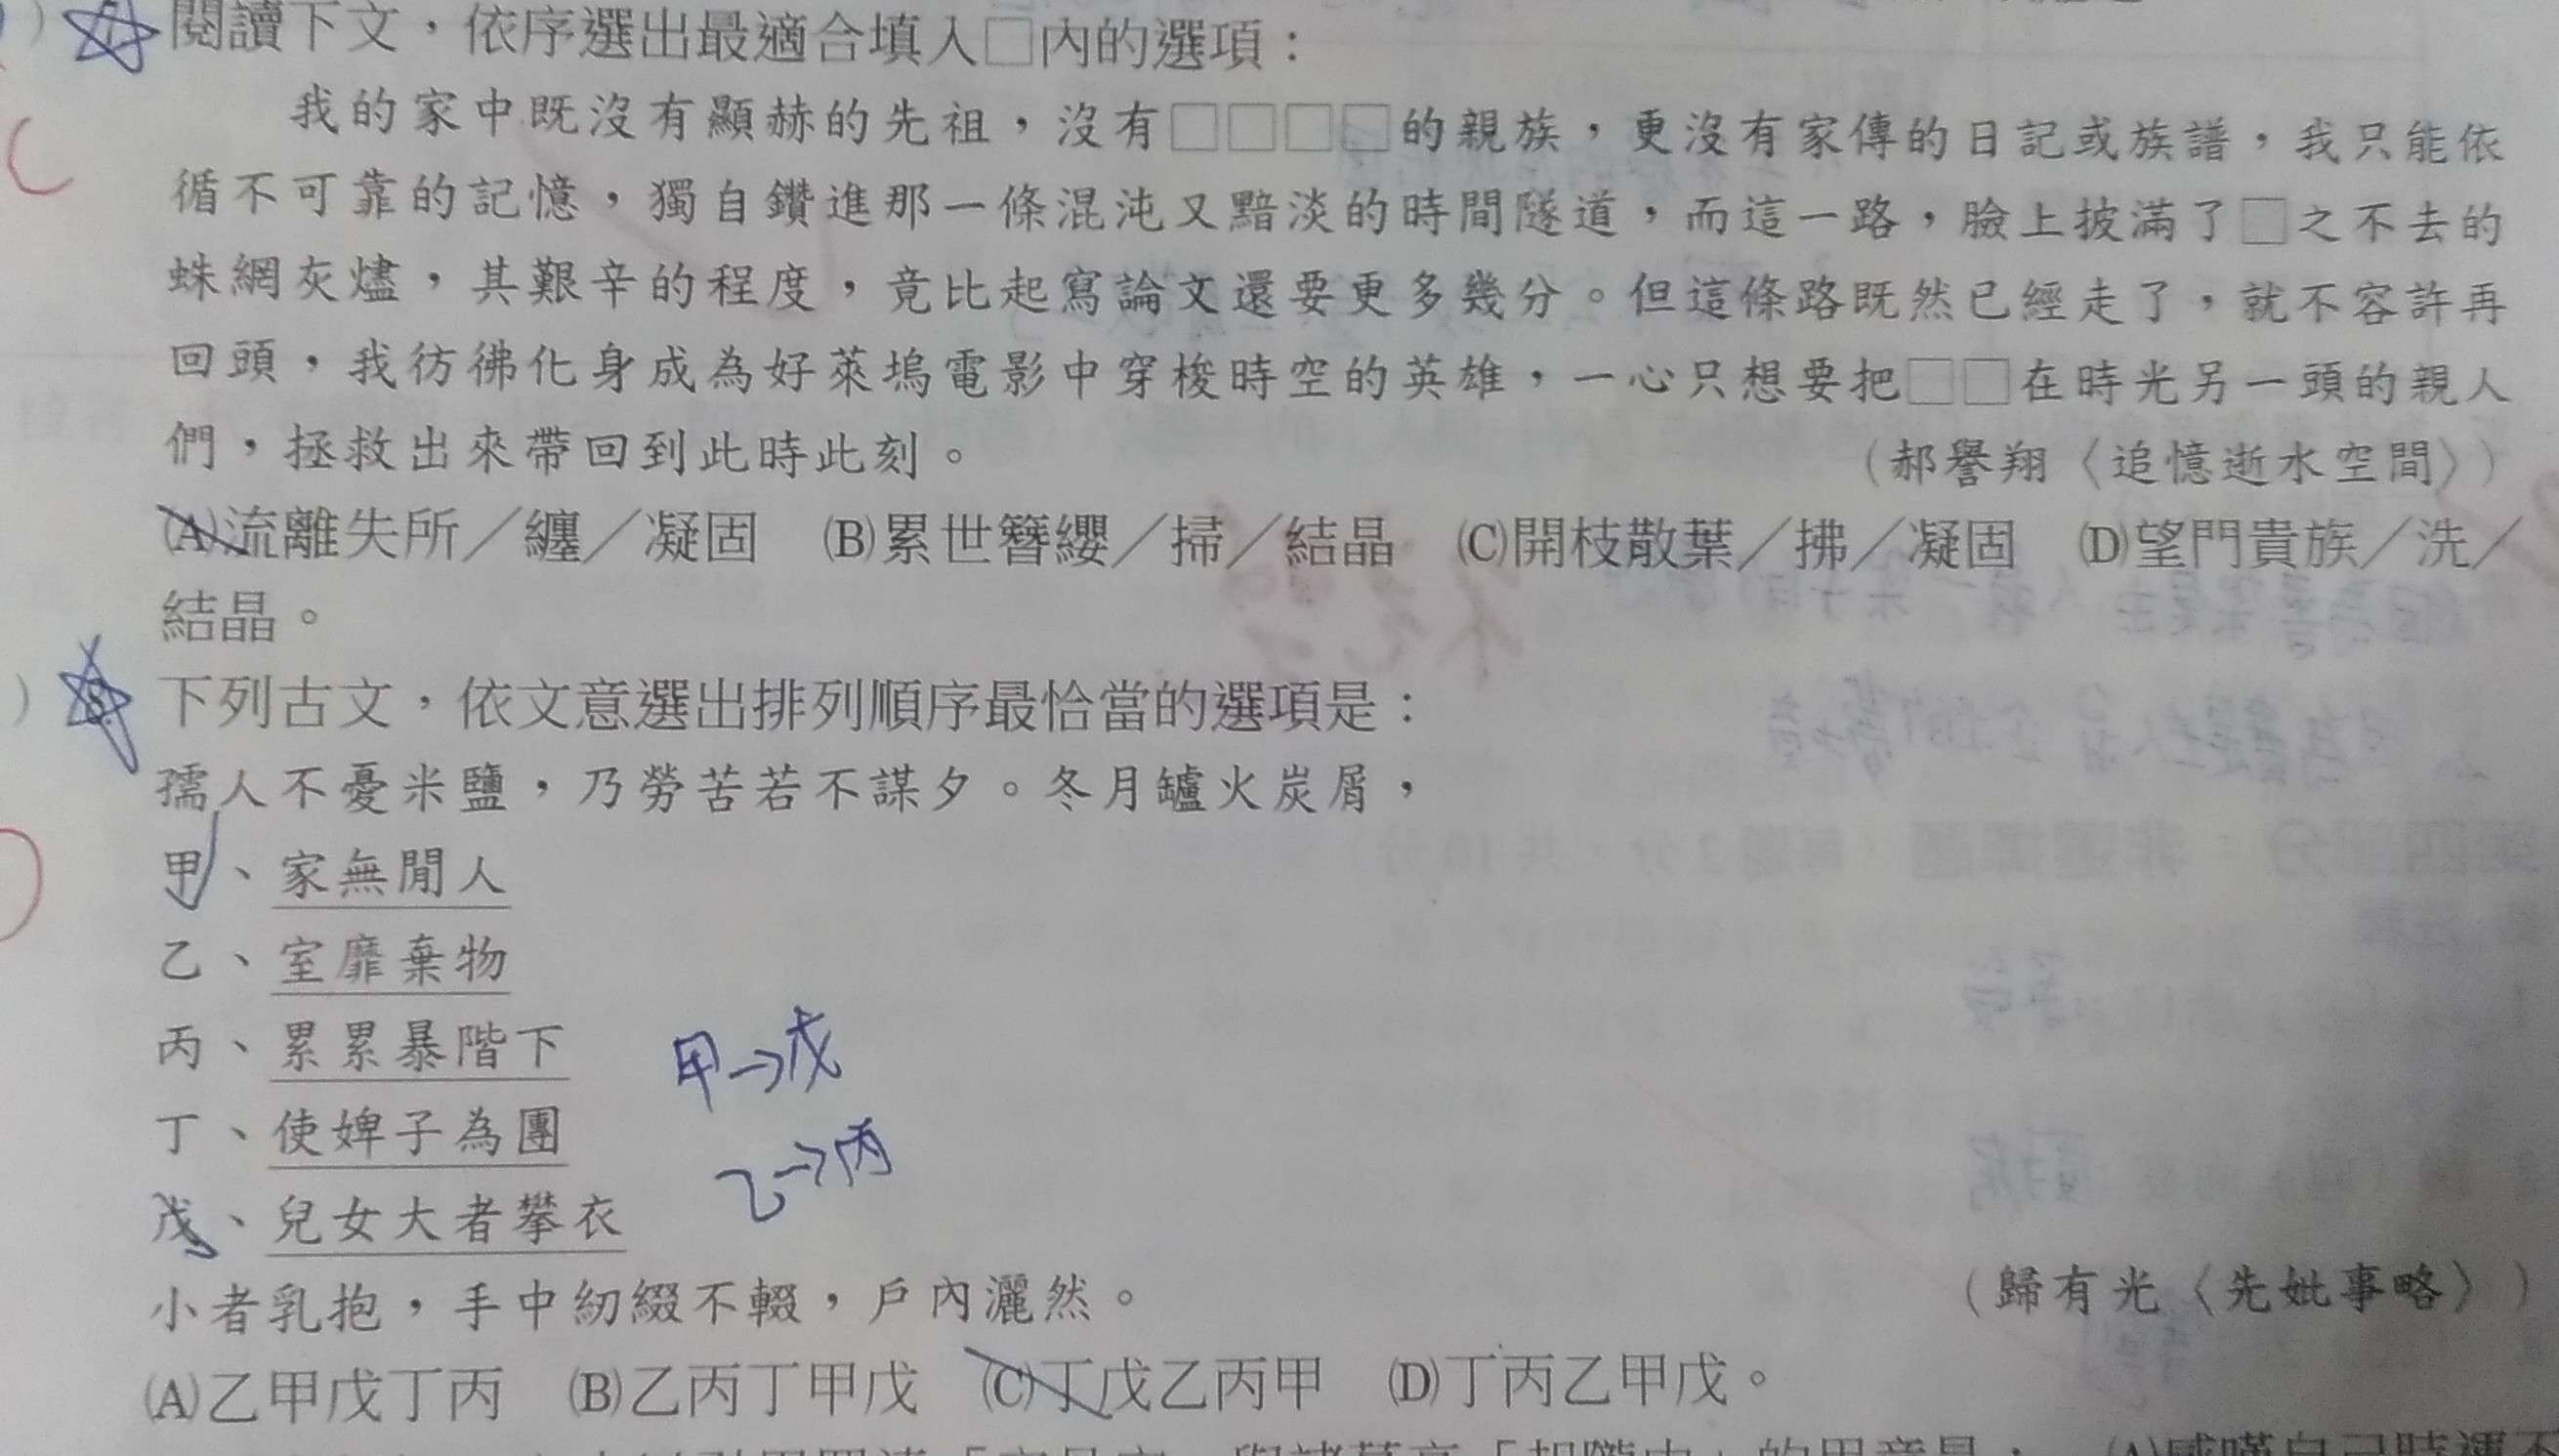 閱讀下文，依序選出最適合填入□內的選項：
我的家中既沒有顯赫的先祖，沒有□□□□的親族，更沒有家傳的日記或族譜，我只能依
循不可靠的記憶，獨自鑽進那一條混沌又黯淡的時間隧道，而這一路，臉上披滿了□之不去的
蛛網灰燼，其艱辛的程度，竟比起寫論文還要更多幾分。但這條路既然已經走了，就不容許再
回頭，我彷彿化身成為好萊塢電影中穿梭時空的英雄，一心只想要把□□在時光另一頭的親人
們，拯救出來帶回到此時此刻。 （郝譽翔〈追憶逝水空間〉）
(A)流離失所／纏／凝固 (B)累世簪纓／掃／結晶 (C)開枝散葉／拂／凝固 (D)望門貴族／洗／
結晶。
8. 下列古文，依文意選出排列順序最恰當的選項是：
孺人不憂米鹽，乃勞苦若不謀夕。冬月罏火炭屑，
甲、家無閒人
乙、室靡棄物
丙、累累暴階下
甲→戊
丁、使婢子為團
乙→丙
戊、兒女大者攀衣
小者乳抱，手中紉綴不輟，戶內灑然。 （歸有光〈先妣事略〉）
(A)乙甲戊丁丙 (B)乙丙丁甲戊 (C)丁戊乙丙甲 (D)丁丙乙甲戊。